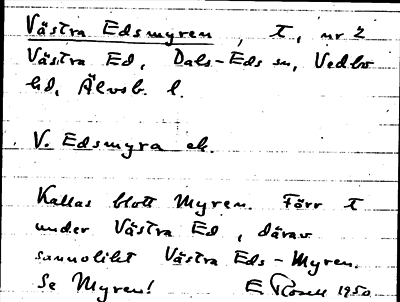 Västra Edsmyren, t, nr 2
Västra Ed, Dals-Eds sn, Vedbo
hd, Älvsb. l.
V. Edsmyra ek.
Kallas blott Myren. Förr t
under Västra Ed, därav
sannolikt Västra Eds-Myren.
Se Myren! E Rosell 1950